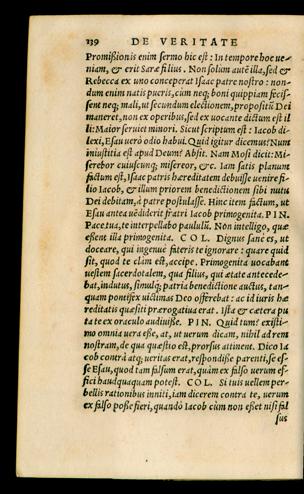 139 DE VERITATE
Promißionis enim sermo hic est: In tempore hoc ue-
niam, & erit Saræ filius. Non solum autē illa, sed &
Rebecca ex uno conceperat Isaac patre nostro: non-
dum enim natis pueris, cùm neq; boni quippiam fecis-
sent neq; mali, ut secundum electionem, propositū Dei
maneret, non ex operibus, sed ex uocante dictum est il
li: Maior seruiet minori. Sicut scriptum est: Iacob di-
lexi, Esau uerò odio habui. Quid igitur dicemus? Num
iniustitia est apud Deum? Absit. Nam Mosi dicit: Mi-
serebor cuiuscunq; misereor, &c. Iam satis planum
factum est, Isaac patris hæreditatem debuisse uenire fi-
lio Iacob, & illum priorem benedictionem sibi nutu
Dei debitam, à patre postulasse. Hinc item factum, ut
Esau antea uēdiderit fratri Iacob primogenita. PIN.
Pace tua, te interpellabo paululū. Non intelligo, quæ
eßent illa primogenita. COL. Dignus sanè es, ut
doceare, qui ingenuè fateris te ignorare: quare quid
sit, quod te clam est, accipe. Primogenita uocabant
uestem sacerdotalem, qua filius, qui ætate antecede-
bat, indutus, simulq; patria benedictione auctus, tan-
quam pontifex uictimas Deo offerebat: ac id iuris hæ
reditatis quæsiti prærogatiua erat. Ista & cætera pu
ta te ex oraculo audiuiße. PIN. Quid tum? existi-
mo omnia uera eße, at, ut uerum dicam, nihil ad rem
nostram, de qua quæstio est, prorsus attinent. Dico Ia
cob contrà atq; ueritas erat, respondiße parenti, se es-
se Esau, quod tam falsum erat, quàm ex falso uerum ef-
fici haudquaquam potest. COL. Si tuis uellem per-
bellis rationibus inniti, iam dicerem contra te, uerum
ex falso poße fieri, quandò Iacob cùm non eßet nisi fal
sus